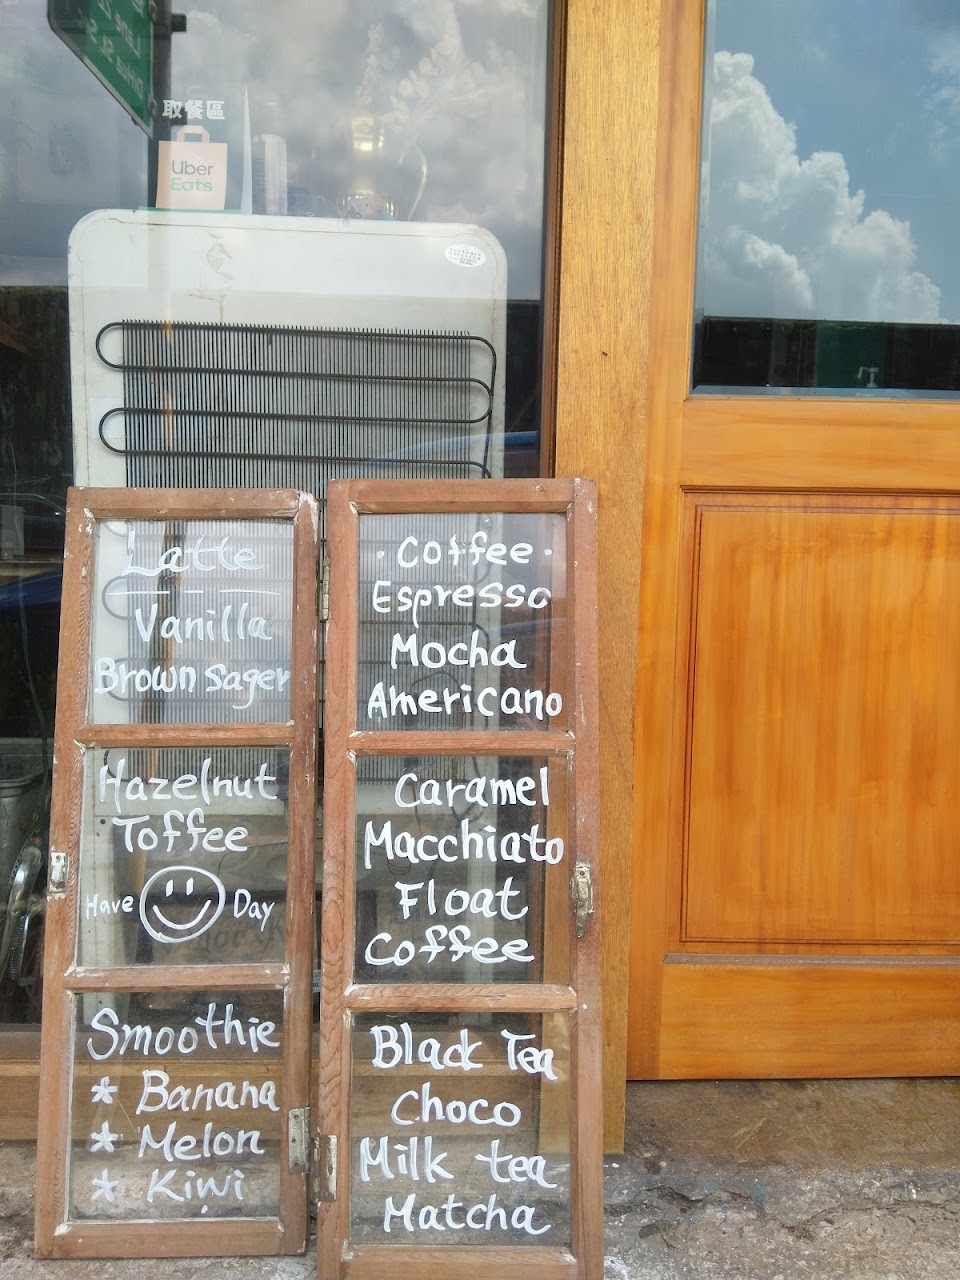 取餐區
Uber
Eats
Latte
Vanilla
Brown Sager
Hazelnut
Toffee
Have Day
Smoothie
* Banana
* Melon
* Kiwi
· Coffee ·
Espresso
Mocha
Americano
Caramel
Macchiato
Float
Coffee
Black Tea
Choco
Milk tea
Matcha